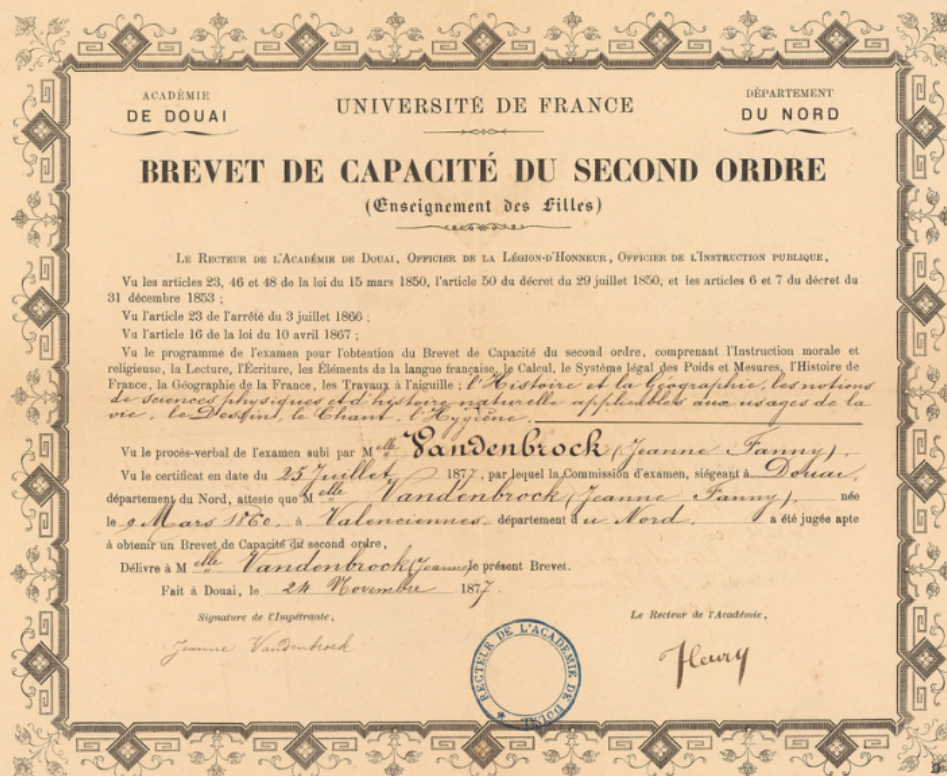 ACADÉMIE
DE DOUAI
UNIVERSITÉ DE FRANCE
DÉPARTEMENT
DU NORD
BREVET DE CAPACITÉ DU SECOND ORDRE
(Enseignement des Filles)
LE RECTEUR DE L'ACADÉMIE DE DOUAI, OFFICIER DE LA LÉGION-D'HONNEUR, OFFICIER DE L'INSTRUCTION PUBLIQUE,
Vu les articles 23, 46 et 48 de la loi du 15 mars 1850, l'article 50 du décret du 29 juillet 1850, et les articles 6 et 7 du décret du
31 décembre 1853 ;
Vu l'article 23 de l'arrêté du 3 juillet 1866 ;
Vu l'article 16 de la loi du 10 avril 1867 ;
Vu le programme de l'examen pour l'obtention du Brevet de Capacité du second ordre, comprenant l'Instruction morale et
religieuse, la Lecture, l'Écriture, les Éléments de la langue française, le Calcul, le Système légal des Poids et Mesures, l'Histoire de
France, la Géographie de la France, les Travaux à l'aiguille ; l'Histoire et la Géographie, les notions
de sciences physiques et d'histoire naturelle applicables aux usages de la
vie, le Dessin, le Chant, l'Hygiène.
Vu le procès-verbal de l'examen subi par Melle Vandenbrock (Jeanne Fanny).
Vu le certificat en date du 25 Juillet 1877, par lequel la Commission d'examen, siégeant à Douai,
département du Nord, atteste que Melle Vandenbrock (Jeanne Fanny), née
le 9 Mars 1860, à Valenciennes, département du Nord, a été jugée apte
à obtenir un Brevet de Capacité du second ordre,
Délivre à Melle Vandenbrock (Jeanne) le présent Brevet.
Fait à Douai, le 24 Novembre 1877.
Signature de l'Impétrante,
Le Recteur de l'Académie,
Jeanne Vandenbrock
Fleury
RECTEUR DE L'ACADÉMIE DE DOUAI